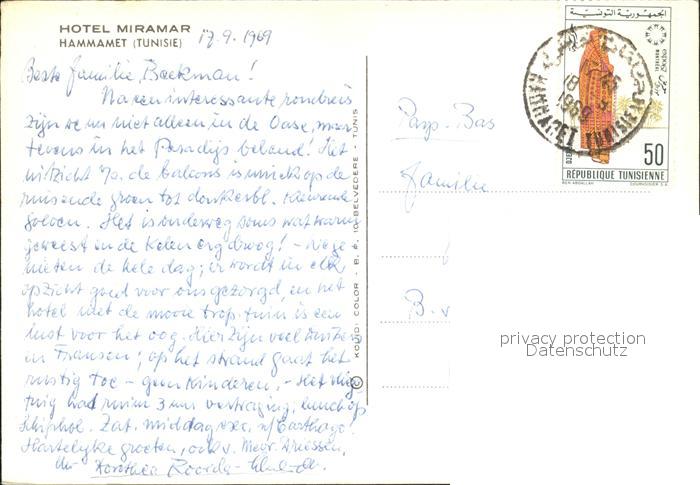 HOTEL MIRAMAR
HAMMAMET (TUNISIE)
17.9.1969
Beste familie Beekman!
Na een interessante rondreis
zijn we nu niet alleen in de Oase, maar
tevens in het Paradijs beland! Het
uitzicht v/d. de balcons is uniek op de
ruisende groen tot donkerbl. kleurende
golven. Het is onderweg soms wat warm
geweest en de kelen erg droog! - Nu ge
nieten de hele dag; er wordt in elk
opzicht goed voor ons gezorgd, en het
hotel met de mooie trop. tuin is een
lust voor het oog. Hier zijn veel
en Fransen; op het strand gaat het
rustig toe - geen kinderen. - Het vlieg
tuig had ruim 3 uur vertraging, lunch op
Schiphol. Zat. middag Carthago!
Hartelijke groeten, ook v. Mevr. Driessen,
Uw Dorothea Roorda-
KOLOR-COLOR - B. P. 10 BELVEDERE - TUNIS
©
الجمهورية التونسية
HAMMAMET
TUNISIE
18
1969
50
RÉPUBLIQUE TUNISIENNE
BEN ABDALLAH
COURVOISIER S.A.
Pays-Bas
Familie
B. v
privacy protection
Datenschutz